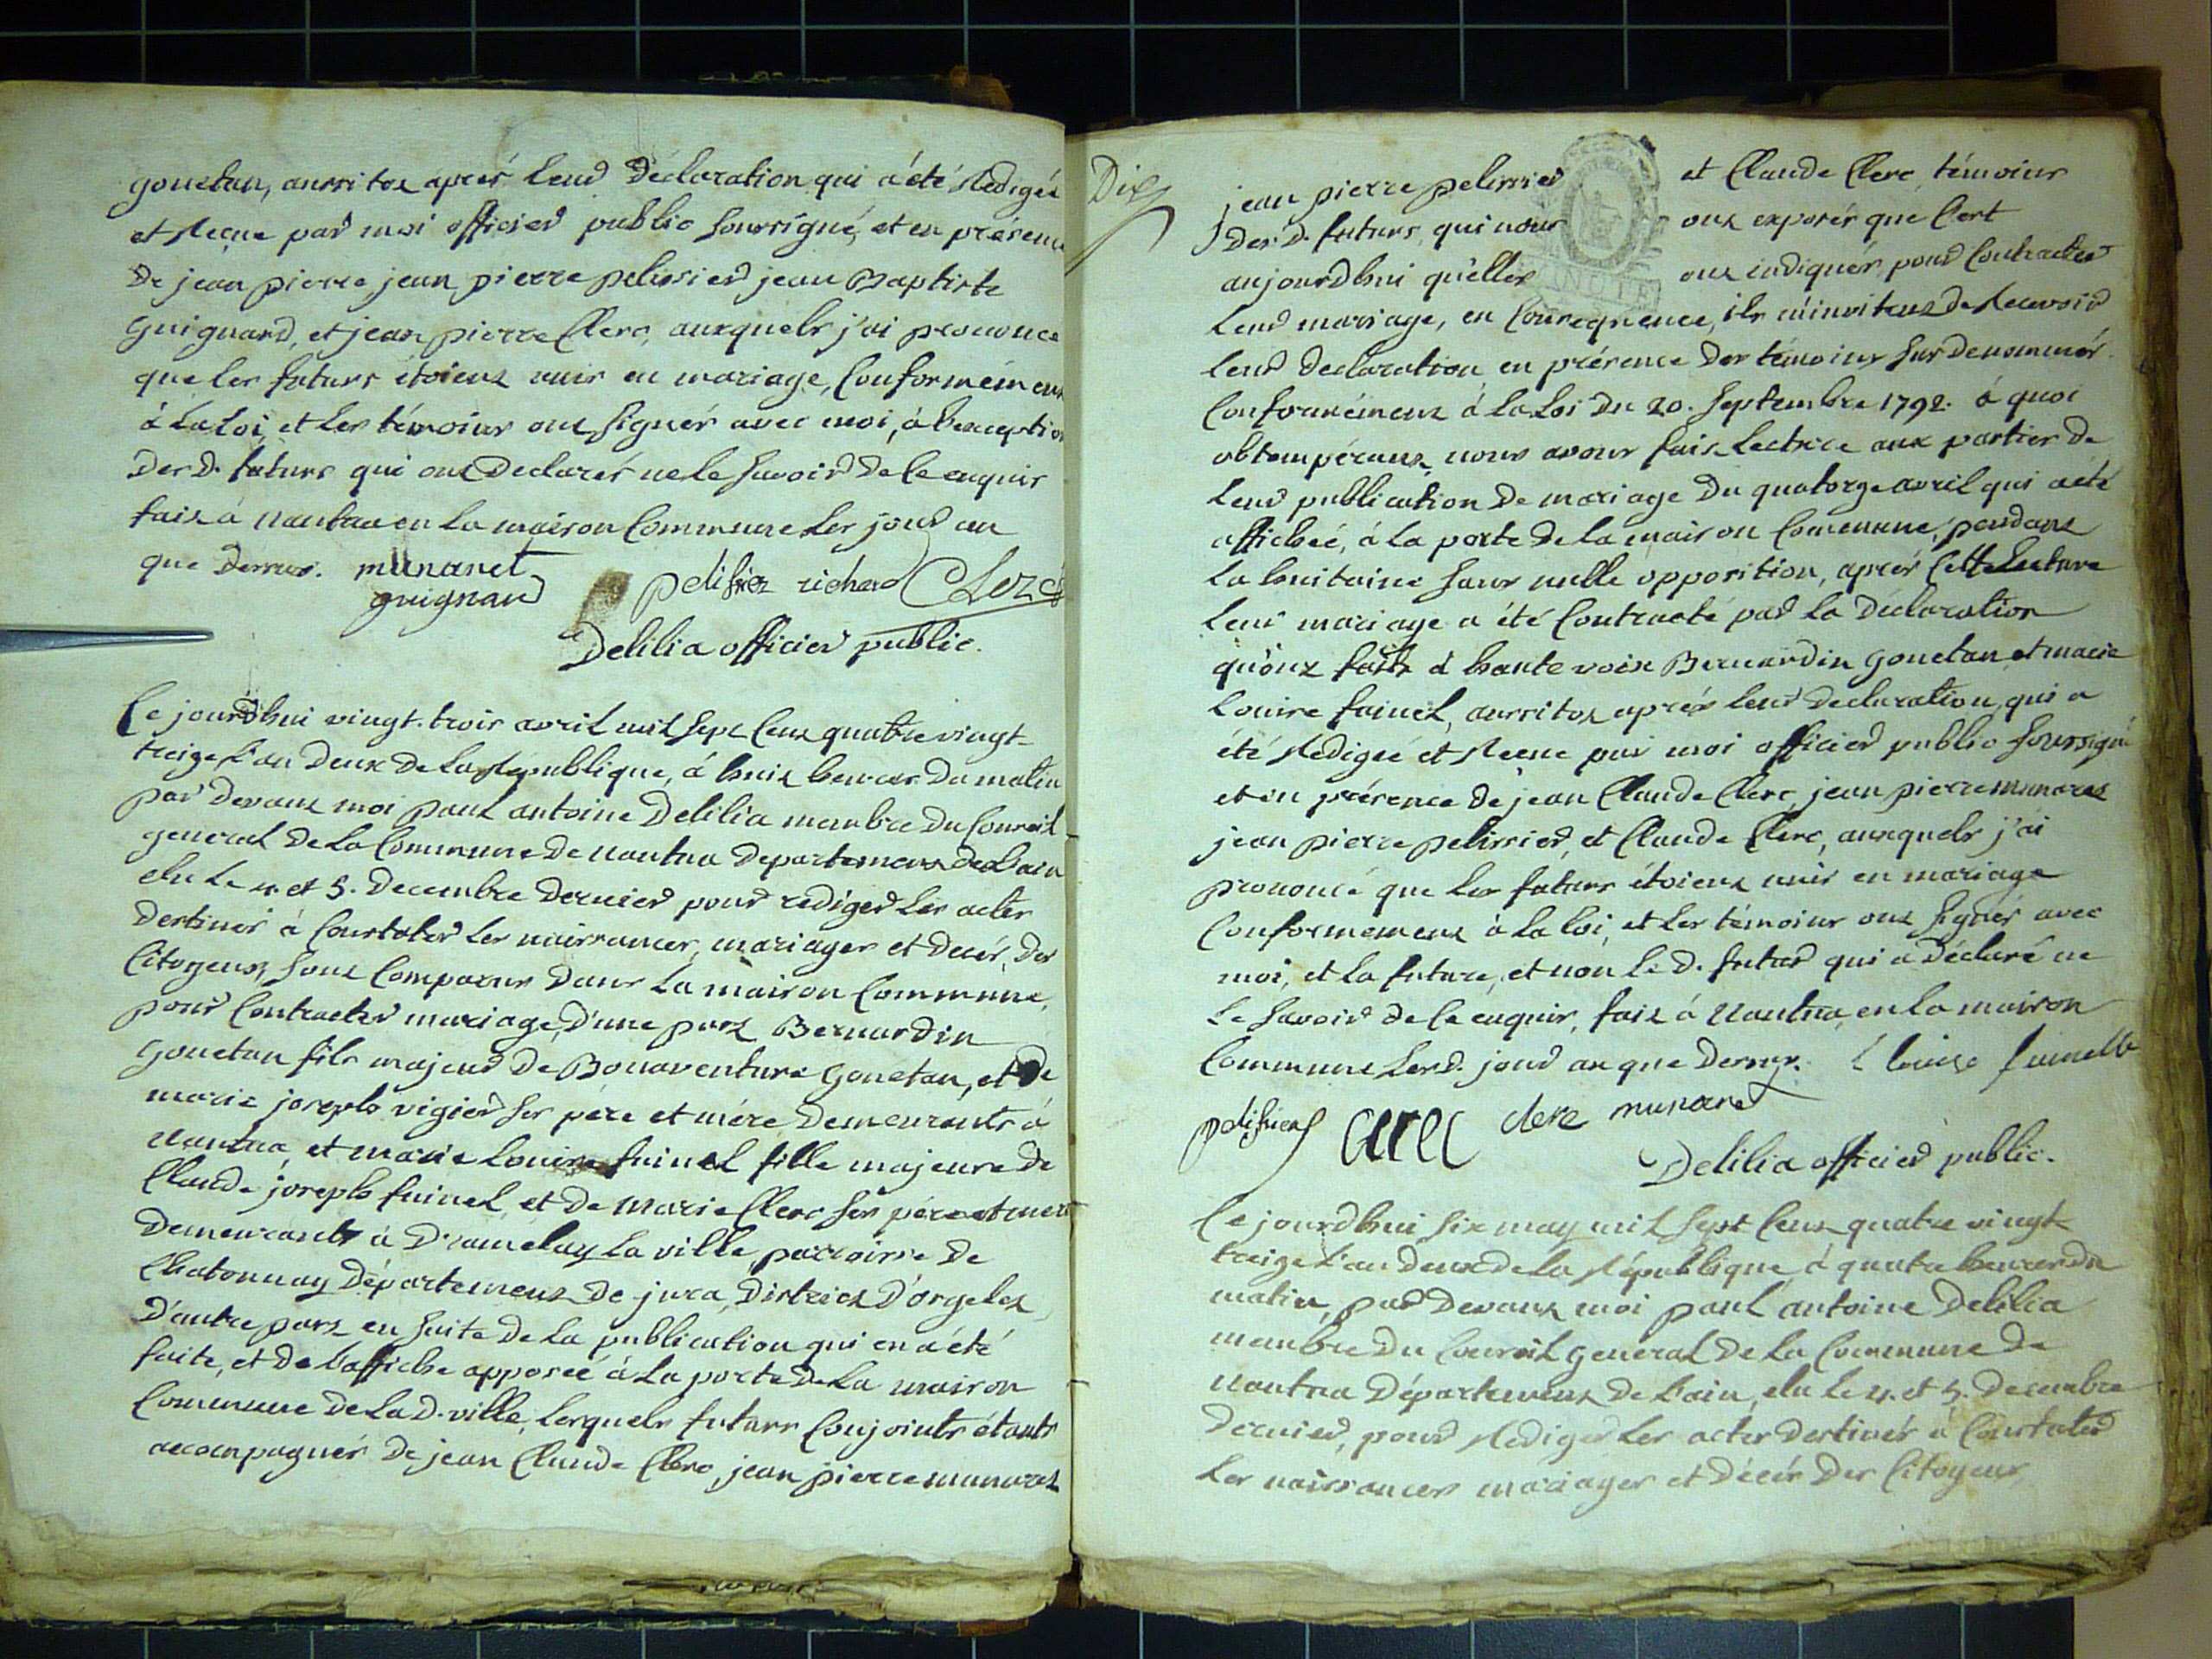 gouetan, aussitot après leur déclaration qui a été rédigée
et reçue par moi officier public soussigné, et en présence
de jean pierre jean pierre pelissier jean Baptiste
Guignard, et jean pierre Clerc, auxquels j'ai prononcé
que les futurs étoient unis en mariage, Conformément
à la Loi, et les témoins ont signés avec moi, à l'exception
des d. futurs qui ont declarés ne le savoir de ce enquis
fait à Nantua en la maison Commune les jour an
que dessus. munaret
guignard pelissier richard Clerc
Delilia officier public.
Ce jourd'hui vingt-trois avril mil sept cent quatre vingt-
treize l'an deux de la République, à huit heures du matin
par devant moi paul antoine Delilia membre du Conseil
general de la Commune de nantua departement de l'ain
elu le 4. et 5. Decembre dernier pour rediger les actes
destinés à Constater les naissances, mariages et decès, des
Citoyens, sont Comparus dans la maison Commune,
pour Contracter mariage, d'une part Bernardin
Gouetan fils majeur de Bonaventure Gouetan, et de
marie joseph vigier ses père et mère demeurants à
nantua, et marie Louise fuinel fille majeure de
Claude joseph fuinel, et de marie Clerc ses père et mere
demeurants à Dramelay la ville, parroisse de
Chatonnay Département de jura, District d'orgelet
d'autre part en suite de la publication qui en a été
faite, et de l'affiche apposée à la porte de la maison
Commune de la d. ville, lesquels futurs Conjoints étants
accompagnés de jean Claude Clerc, jean pierre munaret
Dix
jean pierre pelissier et Claude Clerc, témoins
des d. futurs, qui nous ont exposés que C'est
aujourd'hui qu'elles ont indiqués, pour Contracter
leur mariage, en Consequence, ils m'invitent de recevoir
leur declaration en présence des témoins sus denommés
Conformément à la Loi du 20. Septembre 1792. à quoi
obtempérant, nous avons fait lectrice aux parties de
leur publication de mariage du quatorze avril qui a été
affichée, à la porte de la maison Commune, pendant
la huitaine sans nulle opposition, après Cette lecture
leur mariage a été Contracté par la Déclaration
qu'ont faite à haute voix Bernardin Gouetan et marie
Louise fuinel, aussitot après leur declaration, qui a
été rédigée et recue par moi officier public soussigné
et en présence de jean Claude Clerc, jean pierre munaret
jean pierre pelissier, et Claude Clerc, auxquels j'ai
prononcé que les futurs étoient unis en mariage
Conformement à la loi, et les témoins ont signés avec
moi, et la future, et non le d. futur qui a déclaré ne
le savoir de ce enquis, fait à Nantua, en la maison
Commune les d. jour an que dessus. louise fuinelle
pelissier clerc clerc munaret
Delilia officier public.
Ce jourd'hui six may mil sept cent quatre vingt
treize l'an deux de la République à quatre heures du
matin, par devant moi paul antoine Delilia
membre du Conseil general de la Commune de
nantua Département de l'ain, elu le 4. et 5. decembre
dernier, pour rediger les actes destinés à Constater
les naissances mariages et décès des Citoyens